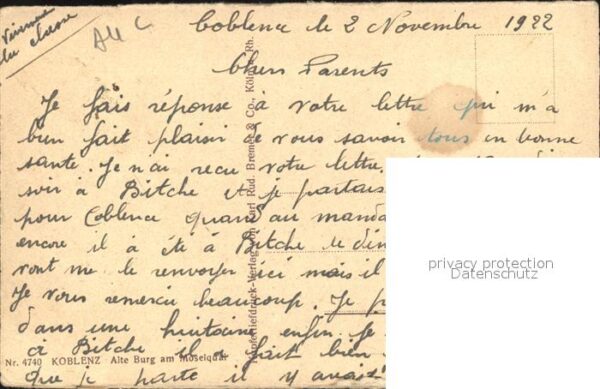 Coblence le 2 Novembre 1922
Chers Parents
Je fais réponse à votre lettre qui m'a
bien fait plaisir de vous savoir tous en bonne
santé. Je n'ai recu votre lettre
soir à Bitche et je partais
pour Coblence quand au manda
encore il à été à Bitche le
vont me le renvoyer ici mais il
Je vous remerci beaucoup. Je
dans une huitaine enfin je
à Bitche il fait bien
que je parte il y avait
Nr. 4740 KOBLENZ Alte Burg am Moselquai
Kupfertiefdruck-Verlag von Karl Rud. Bremer & Co., Köln a. Rh.
privacy protection
Datenschutz